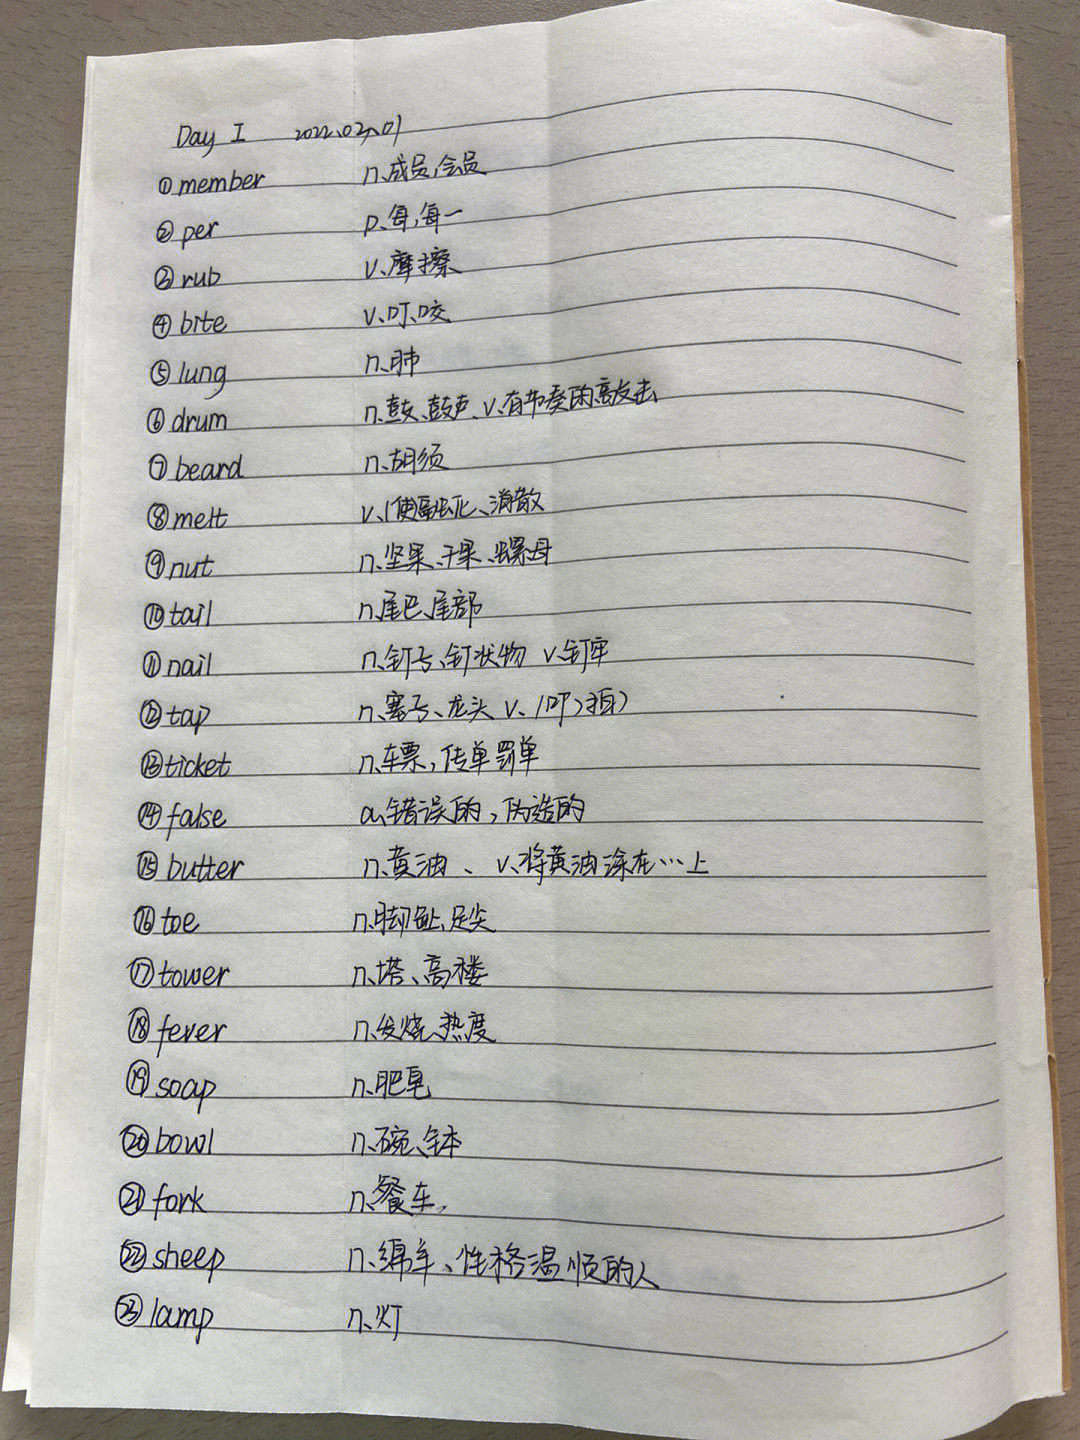 Day I 2022.02.01
①member n.成员,会员
②per p.每,每一
③rub v.摩擦
④bite v.叮、咬
⑤lung n.肺
⑥drum n.鼓、鼓声、v.有节奏的敲击
⑦beard n.胡须
⑧melt v.(使融化、消散
⑨nut n.坚果、干果、螺母
⑩tail n.尾巴、尾部
⑪nail n.钉子、钉状物 v.钉牢
⑫tap n.塞子、龙头 v.(叩)拍)
⑬ticket n.车票,传单 罚单
⑭false a.错误的,伪造的
⑮butter n.黄油、 v.将黄油涂在…上
⑯toe n.脚趾、足尖
⑰tower n.塔、高楼
⑱fever n.发烧、热度
⑲soap n.肥皂
⑳bowl n.碗、钵
㉑fork n.餐车,
㉒sheep n.绵羊、性格温顺的人
㉓lamp n.灯